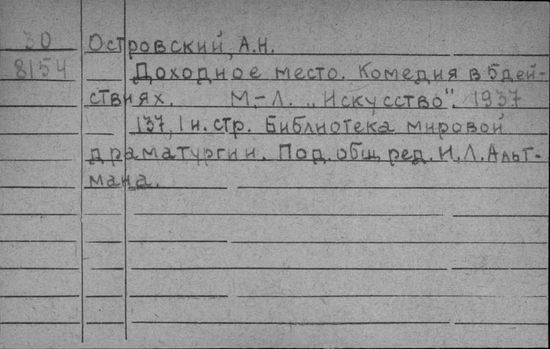 30 Островский, А.Н.
8154 Доходное место. Комедия в 5 дей-
ствиях. М.-Л. „Искусство". 1937
137, 1 н. стр. Библиотека мировой
драматургии. Под. общ. ред. И.Л. Альт-
мана.